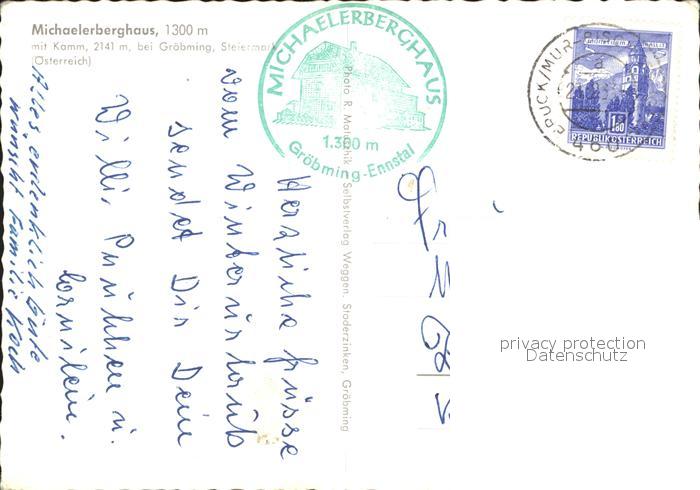 Michaelerberghaus, 1300 m
mit Kamm, 2141 m, bei Gröbming, Steiermark
(Österreich)
MICHAELERBERGHAUS
1.300 m
Gröbming-Ennstal
Herzliche Grüsse
vom Winterurlaub
sendet Dir Dein
Willi, Putzchen u.
Cornelia.
Alles erdenklich Gute
wünscht Familie Koch
Photo R. Selbstverlag Weggen, Stoderzinken, Gröbming
BRUCK/MUR
1.80
REPUBLIK ÖSTERREICH
privacy protection
Datenschutz